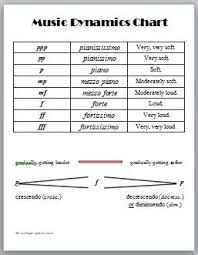 Music Dynamics Chart
ppp pianississimo Very, very soft.
pp pianissimo Very soft.
p piano Soft.
mp mezzo piano Moderately soft.
mf mezzo forte Moderately loud.
f forte Loud.
ff fortissimo Very loud.
fff fortississimo Very, very loud.
gradually getting louder gradually getting softer
p f p
crescendo (cresc.) decrescendo (decresc.)
or diminuendo (dim.)